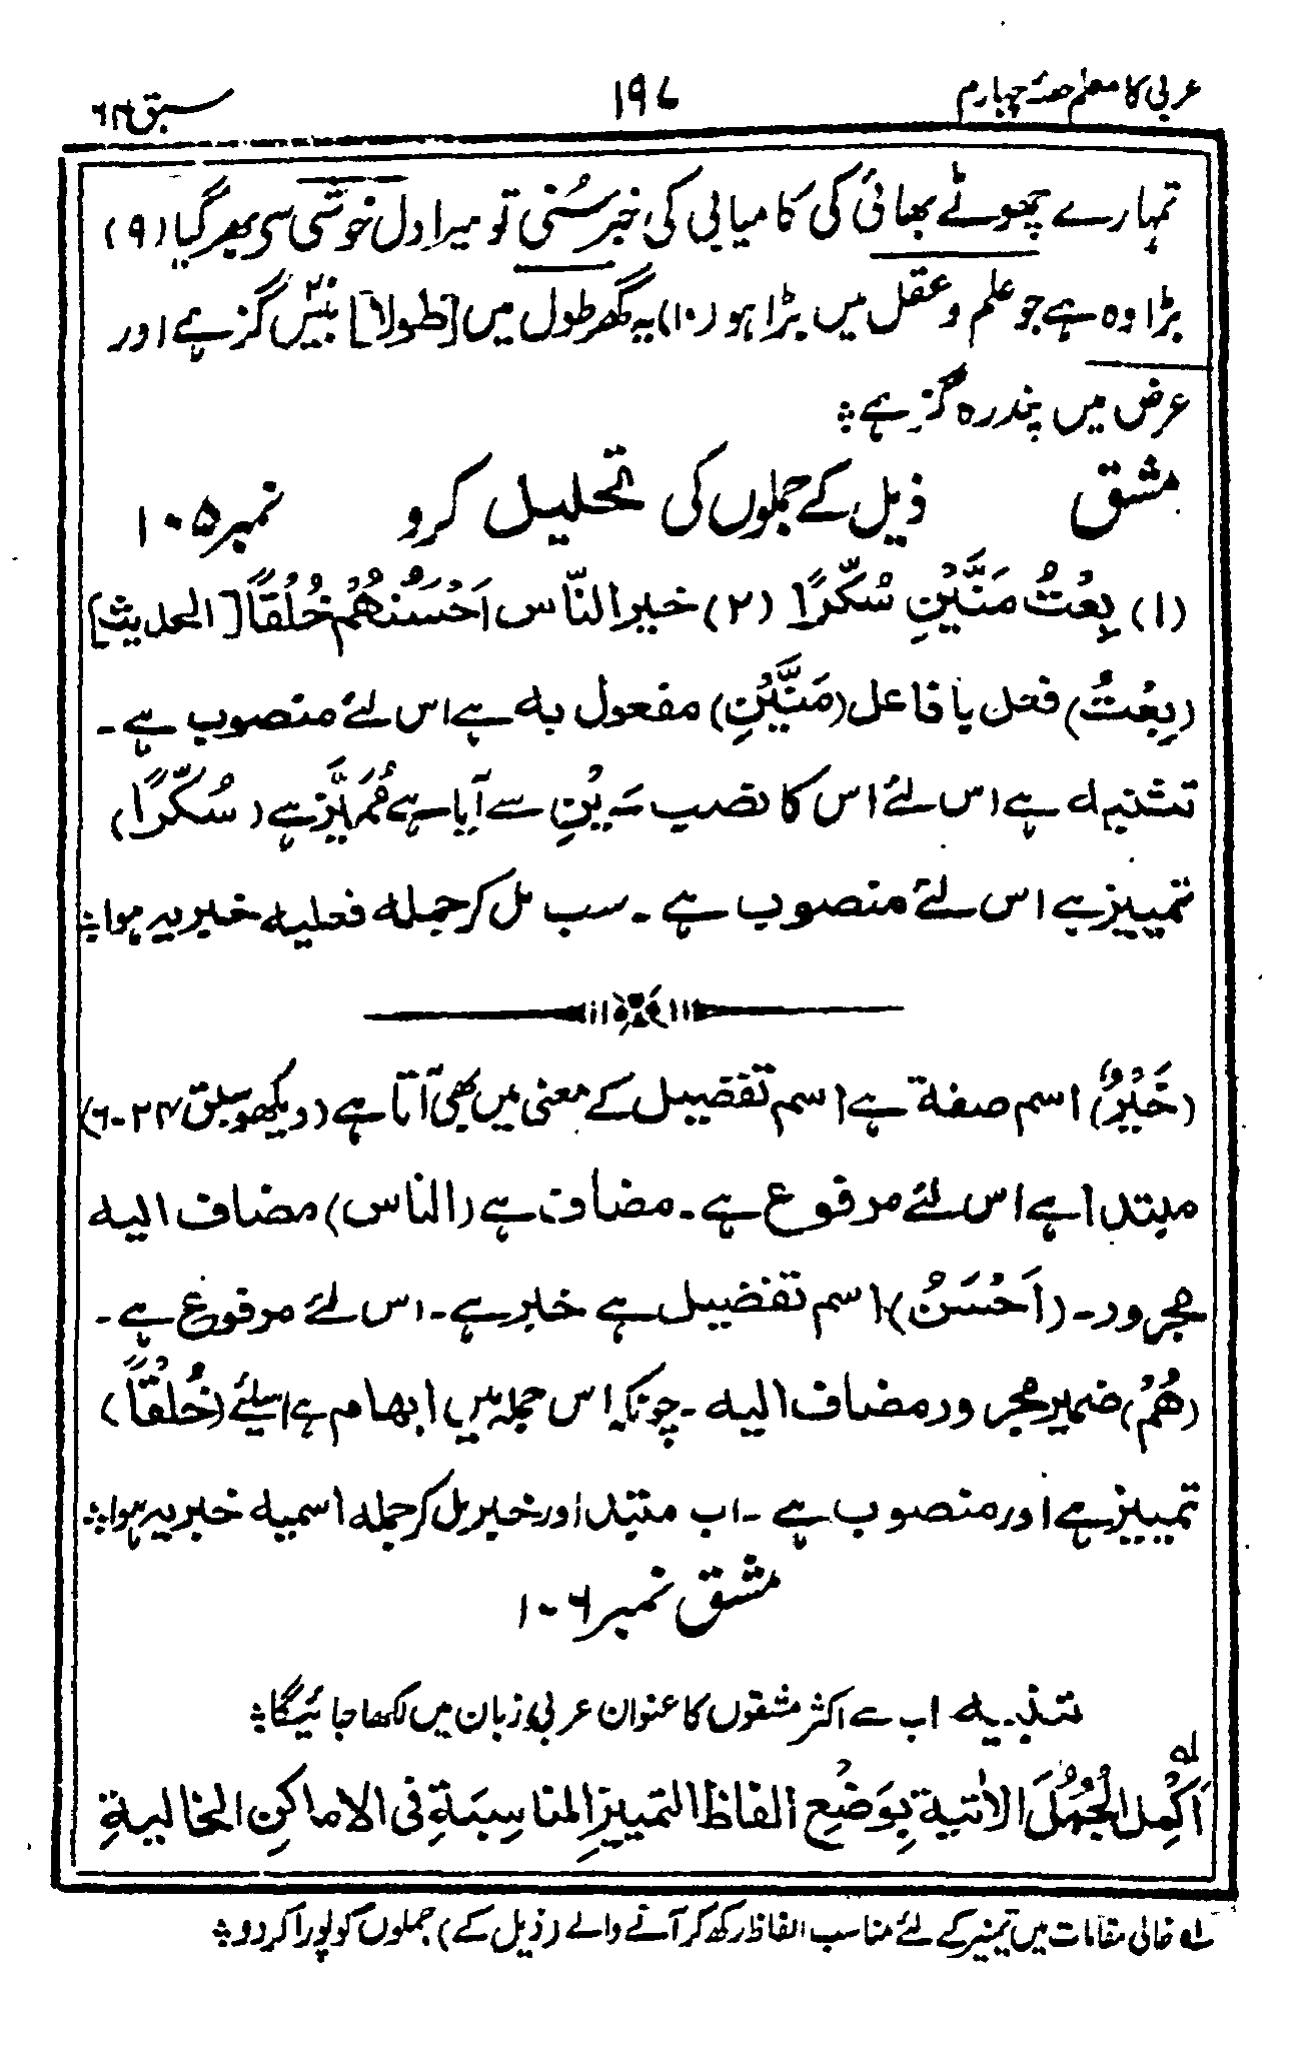 عربی کا معلم حصۂ چہارم ۱۹۷ سبق ۶۴
تمہارے چھوٹے بھائی کی کامیابی کی خبر سُنی تو میرا دل خوشی سی بھر گیا (۹)
بڑا وہ ہے جو علم و عقل میں بڑا ہو (۱۰) یہ گھر طول میں [طولاً] بیس گز ہے اور
عرض میں پندرہ گز ہے؞
مشق ذیل کے جملوں کی تحلیل کرو نمبر ۱۰۵
(۱) بِعْتُ مَنَّيْنِ سُكَّرًا (۲) خیر النّاس اَحْسَنُهُمْ خُلُقًا [الحديث]
(بِعْتُ) فعل با فاعل (مَنَّيْنِ) مفعول به ہے اس لئے منصوب ہے۔
تثنیہ ہے اس لئے اس کا نصب ـَيْنِ سے آیا ہے مُمَيَّز ہے (سُكَّرًا)
تمییز ہے اس لئے منصوب ہے۔ سب مل کر جملہ فعلیہ خبریہ ہوا؞
(خَيْرُ) اسم صفة ہے اسم تفضیل کے معنی میں بھی آتا ہے (دیکھو سبق ۲۴-۶)
مبتدا ہے اس لئے مرفوع ہے۔ مضاف ہے (الناس) مضاف الیہ
مجرور۔ (اَحْسَنُ) اسم تفضیل ہے خبر ہے۔ اس لئے مرفوع ہے۔
(هُمْ) ضمیر مجرور مضاف الیہ۔ چونکہ اس جملہ میں ابھام ہے اسلئے (خُلُقًا)
تمییز ہے اور منصوب ہے۔ اب مبتدا اور خبر مل کر جملہ اسمیہ خبریہ ہوا؞
مشق نمبر ۱۰۶
تنبیہ اب سے اکثر مشقوں کا عنوان عربی زبان میں لکھا جائیگا؞
اَكْمِل الْجُمَلَ الاٰتية بِوَضْعِ الفاظ التمييزِ المناسِبَةِ فى الاماكنِ الخاليةِ لہ
لہ خالی مقامات میں تمیز کے لئے مناسب الفاظ رکھ کر آنے والے (ذیل کے) جملوں کو پورا کر دو؞